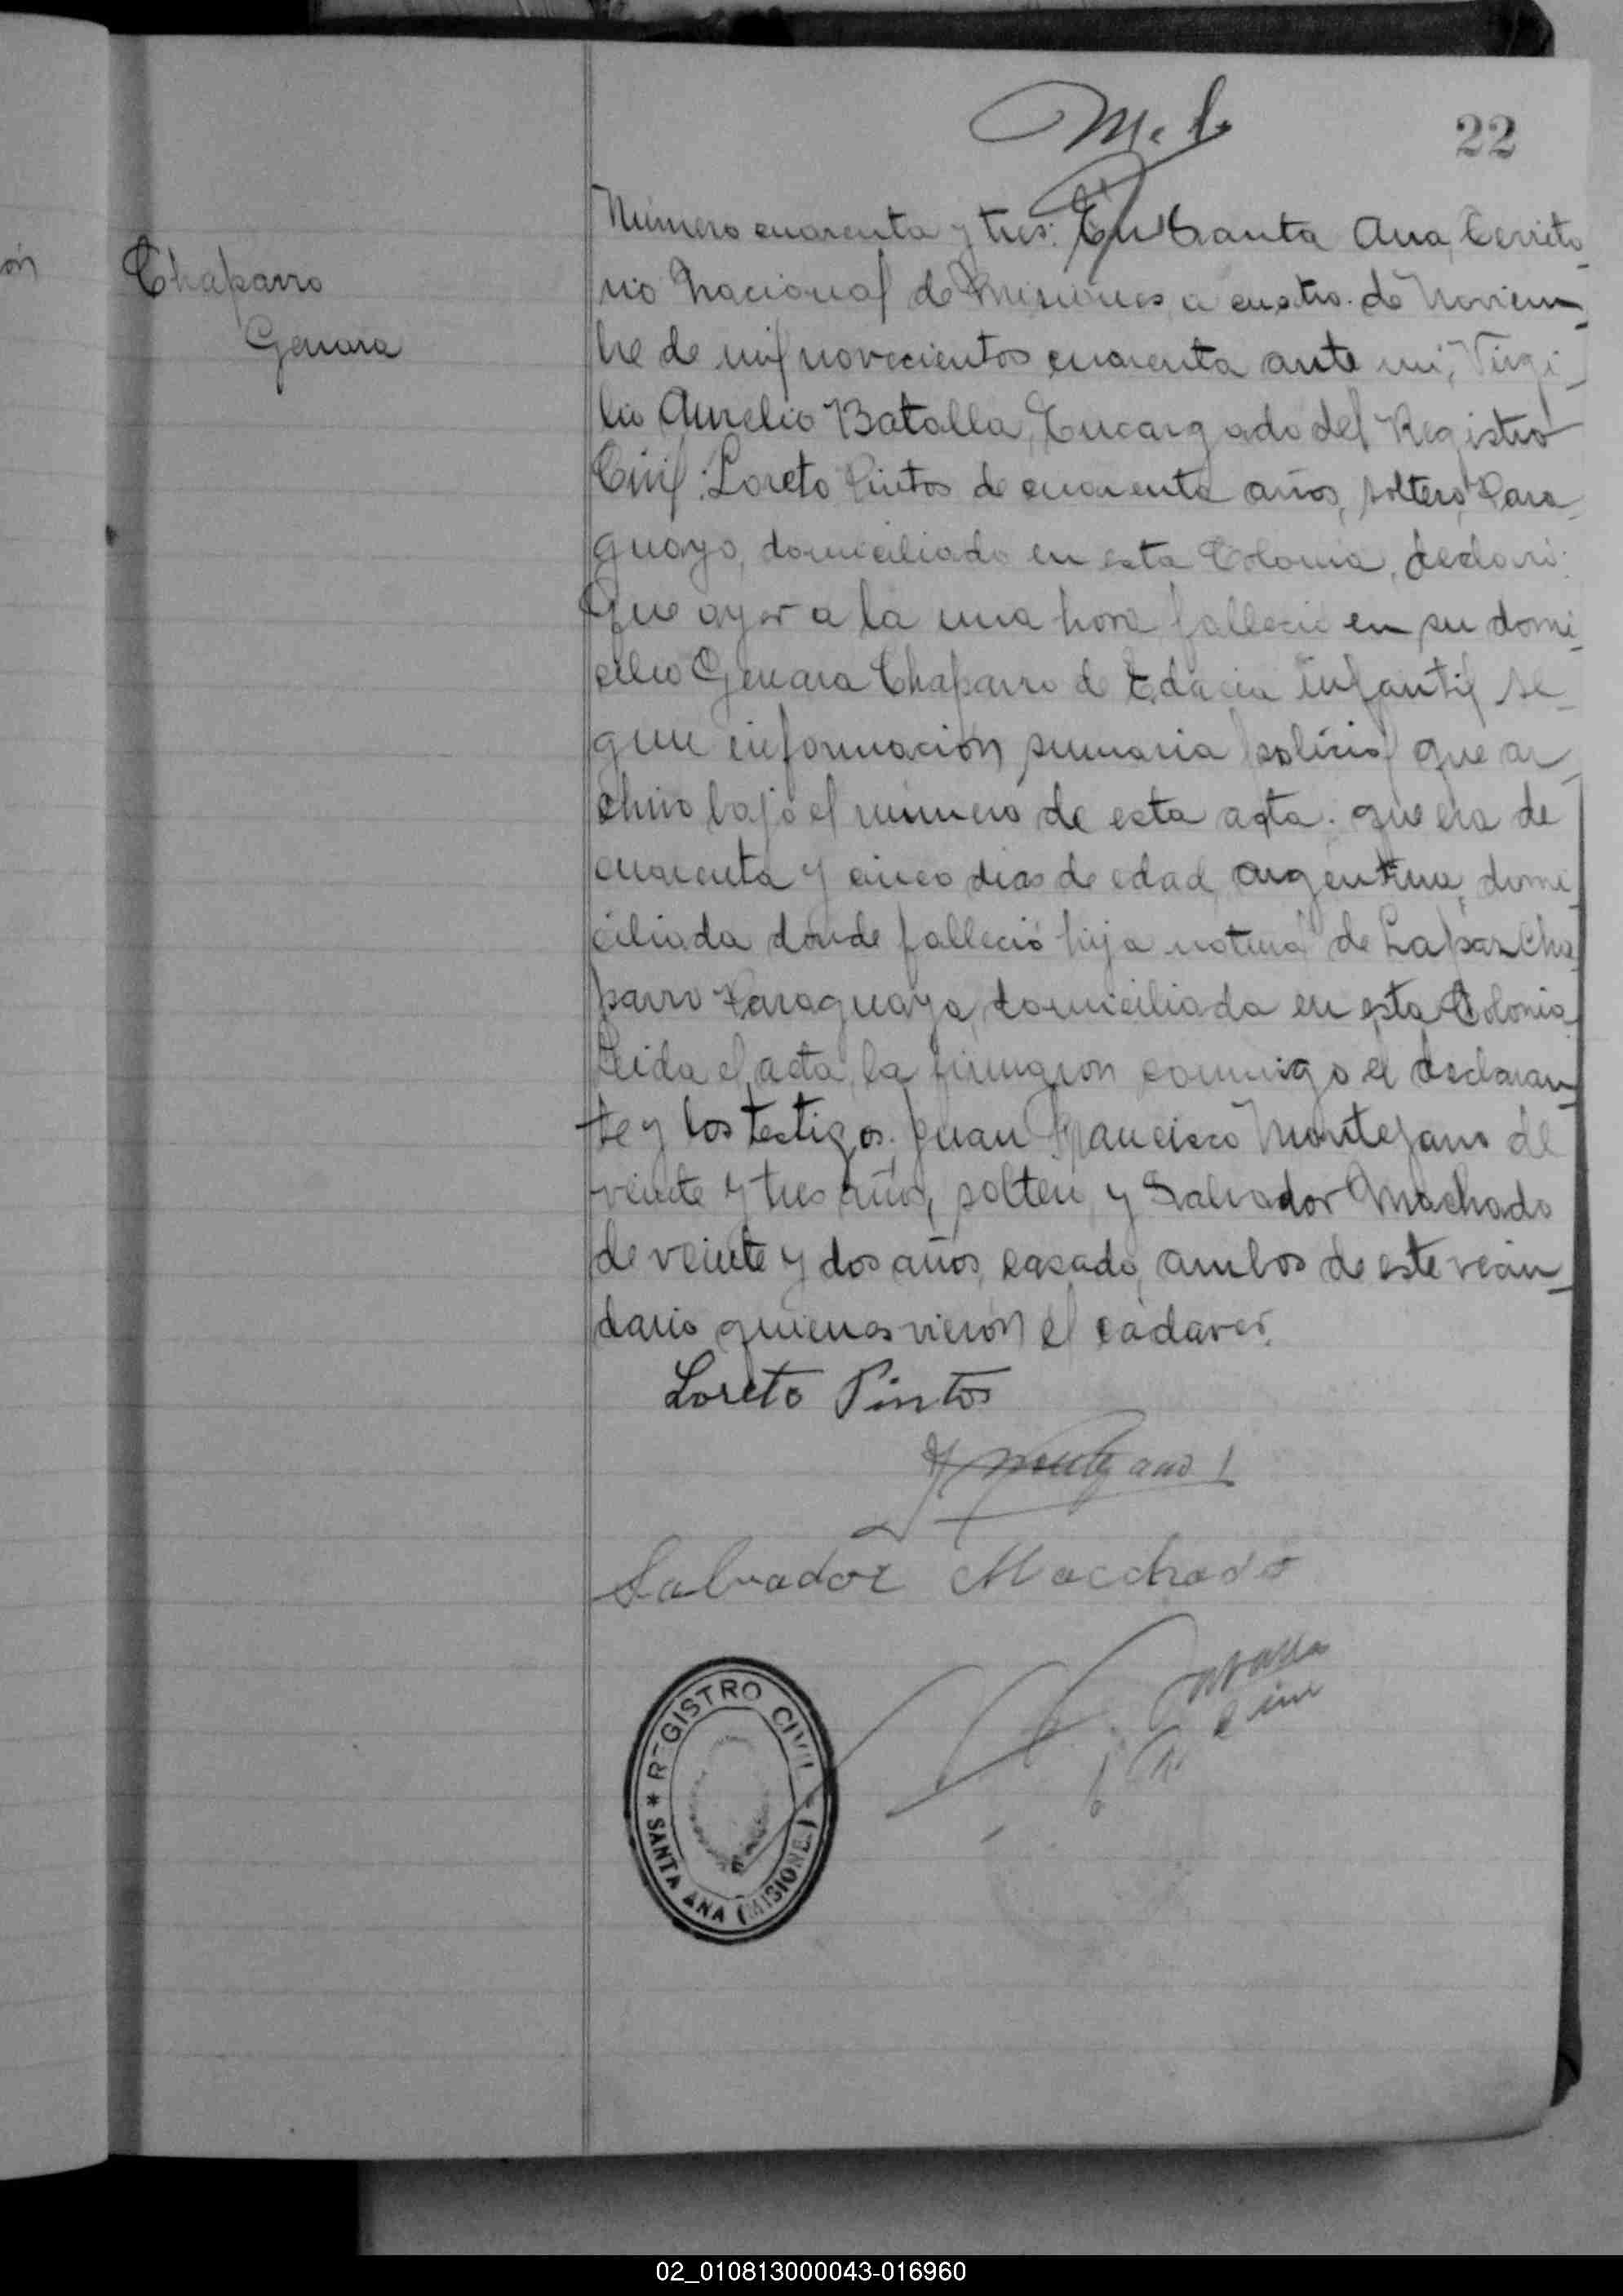 22
Chaparro
Genara
Número cuarenta y tres: En Santa Ana, Territo
rio Nacional de Misiones a cuatro de Noviem
bre de mil novecientos cuarenta ante mi, Virgi
lio Aurelio Batalla, Encargado del Registro
Civil: Loreto Pintos de cuarenta años, soltero, Para
guayo, domiciliado en esta Colonia, declaró:
Que ayer a la una hora falleció en su domi
cilio Genara Chaparro de infantil se
gun información sumaria policial que ar
chivo bajo el número de esta acta. que era de
cuarenta y cinco dias de edad, argentina, domi
ciliada donde falleció hija natural de Lapaz Cha
parro Paraguaya, domiciliada en esta Colonia
Leida el acta, la firmaron conmigo el declaran
te y los testigos. Juan Francisco Montejano de
veinte y tres años, soltero, y Salvador Machado
de veinte y dos años, casado, ambos de este vecin
dario quienes vieron el cadaver.
Loreto Pintos
Salvador Macchado
REGISTRO CIVIL
* SANTA ANA (MISIONES) *
02_010813000043-016960